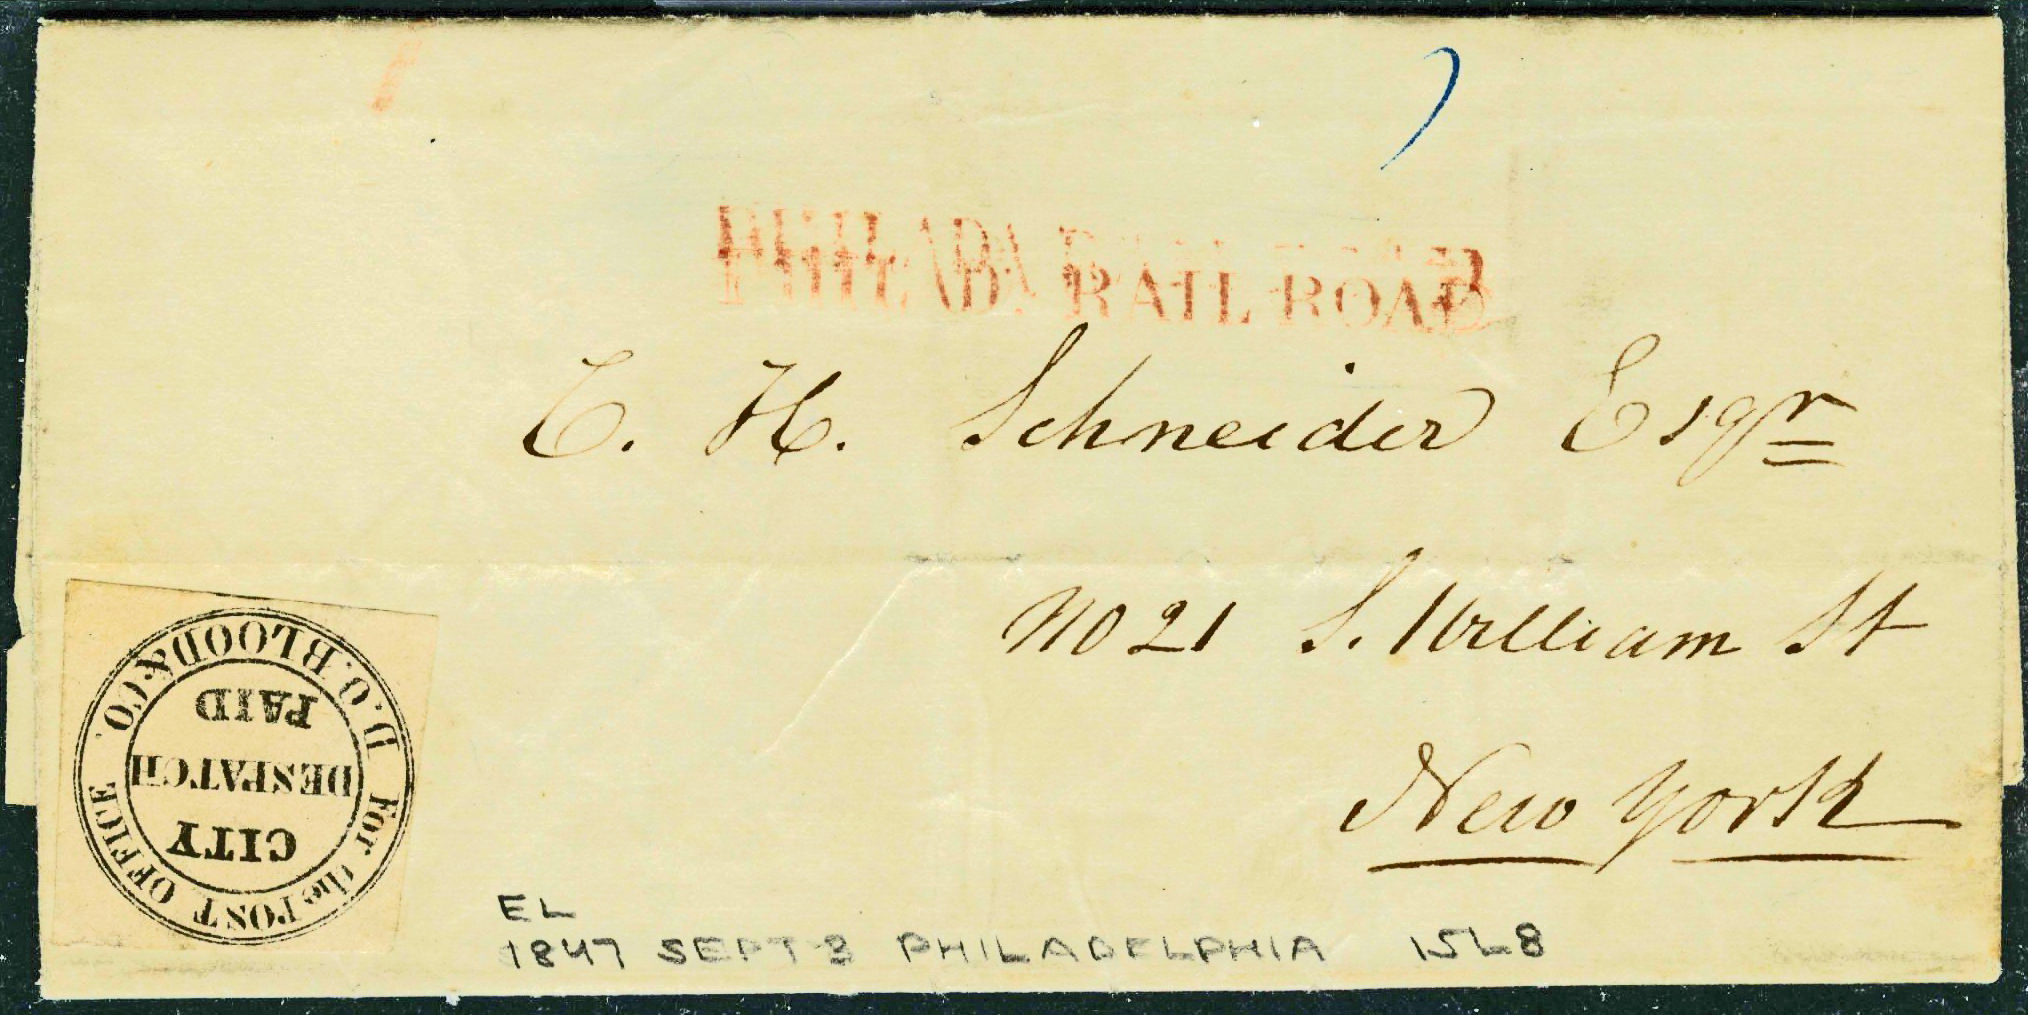 PHILADA RAIL ROAD
PHILADA RAIL ROAD
C. H. Schneider Esqr
No 21 S. William St
New York
D.O. BLOOD & CO.
For the POST OFFICE
CITY
DESPATCH
PAID
EL
1847 SEPT 3 PHILADELPHIA 15L8